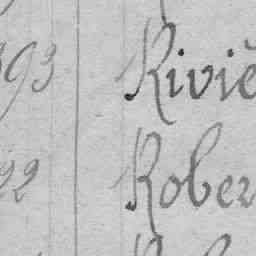 93 Riviè
22 Rober